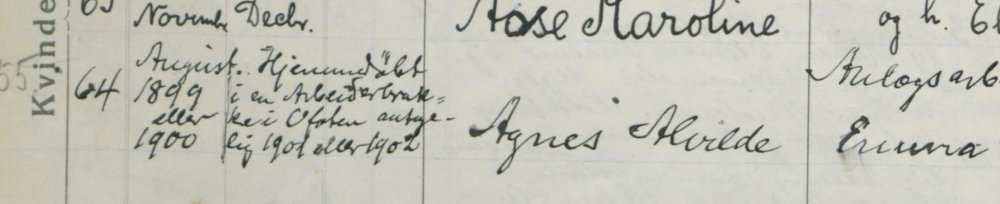 Kvinde
63
Novembr Decbr.
Aase Karoline
og h.
64
August
1899
eller
1900
Hjemmedöbt
i en Arbeiderbrak=
ke i Ofoten antage-
lig 1901 eller 1902
Agnes Alvilde
Anlægsarb
Emma